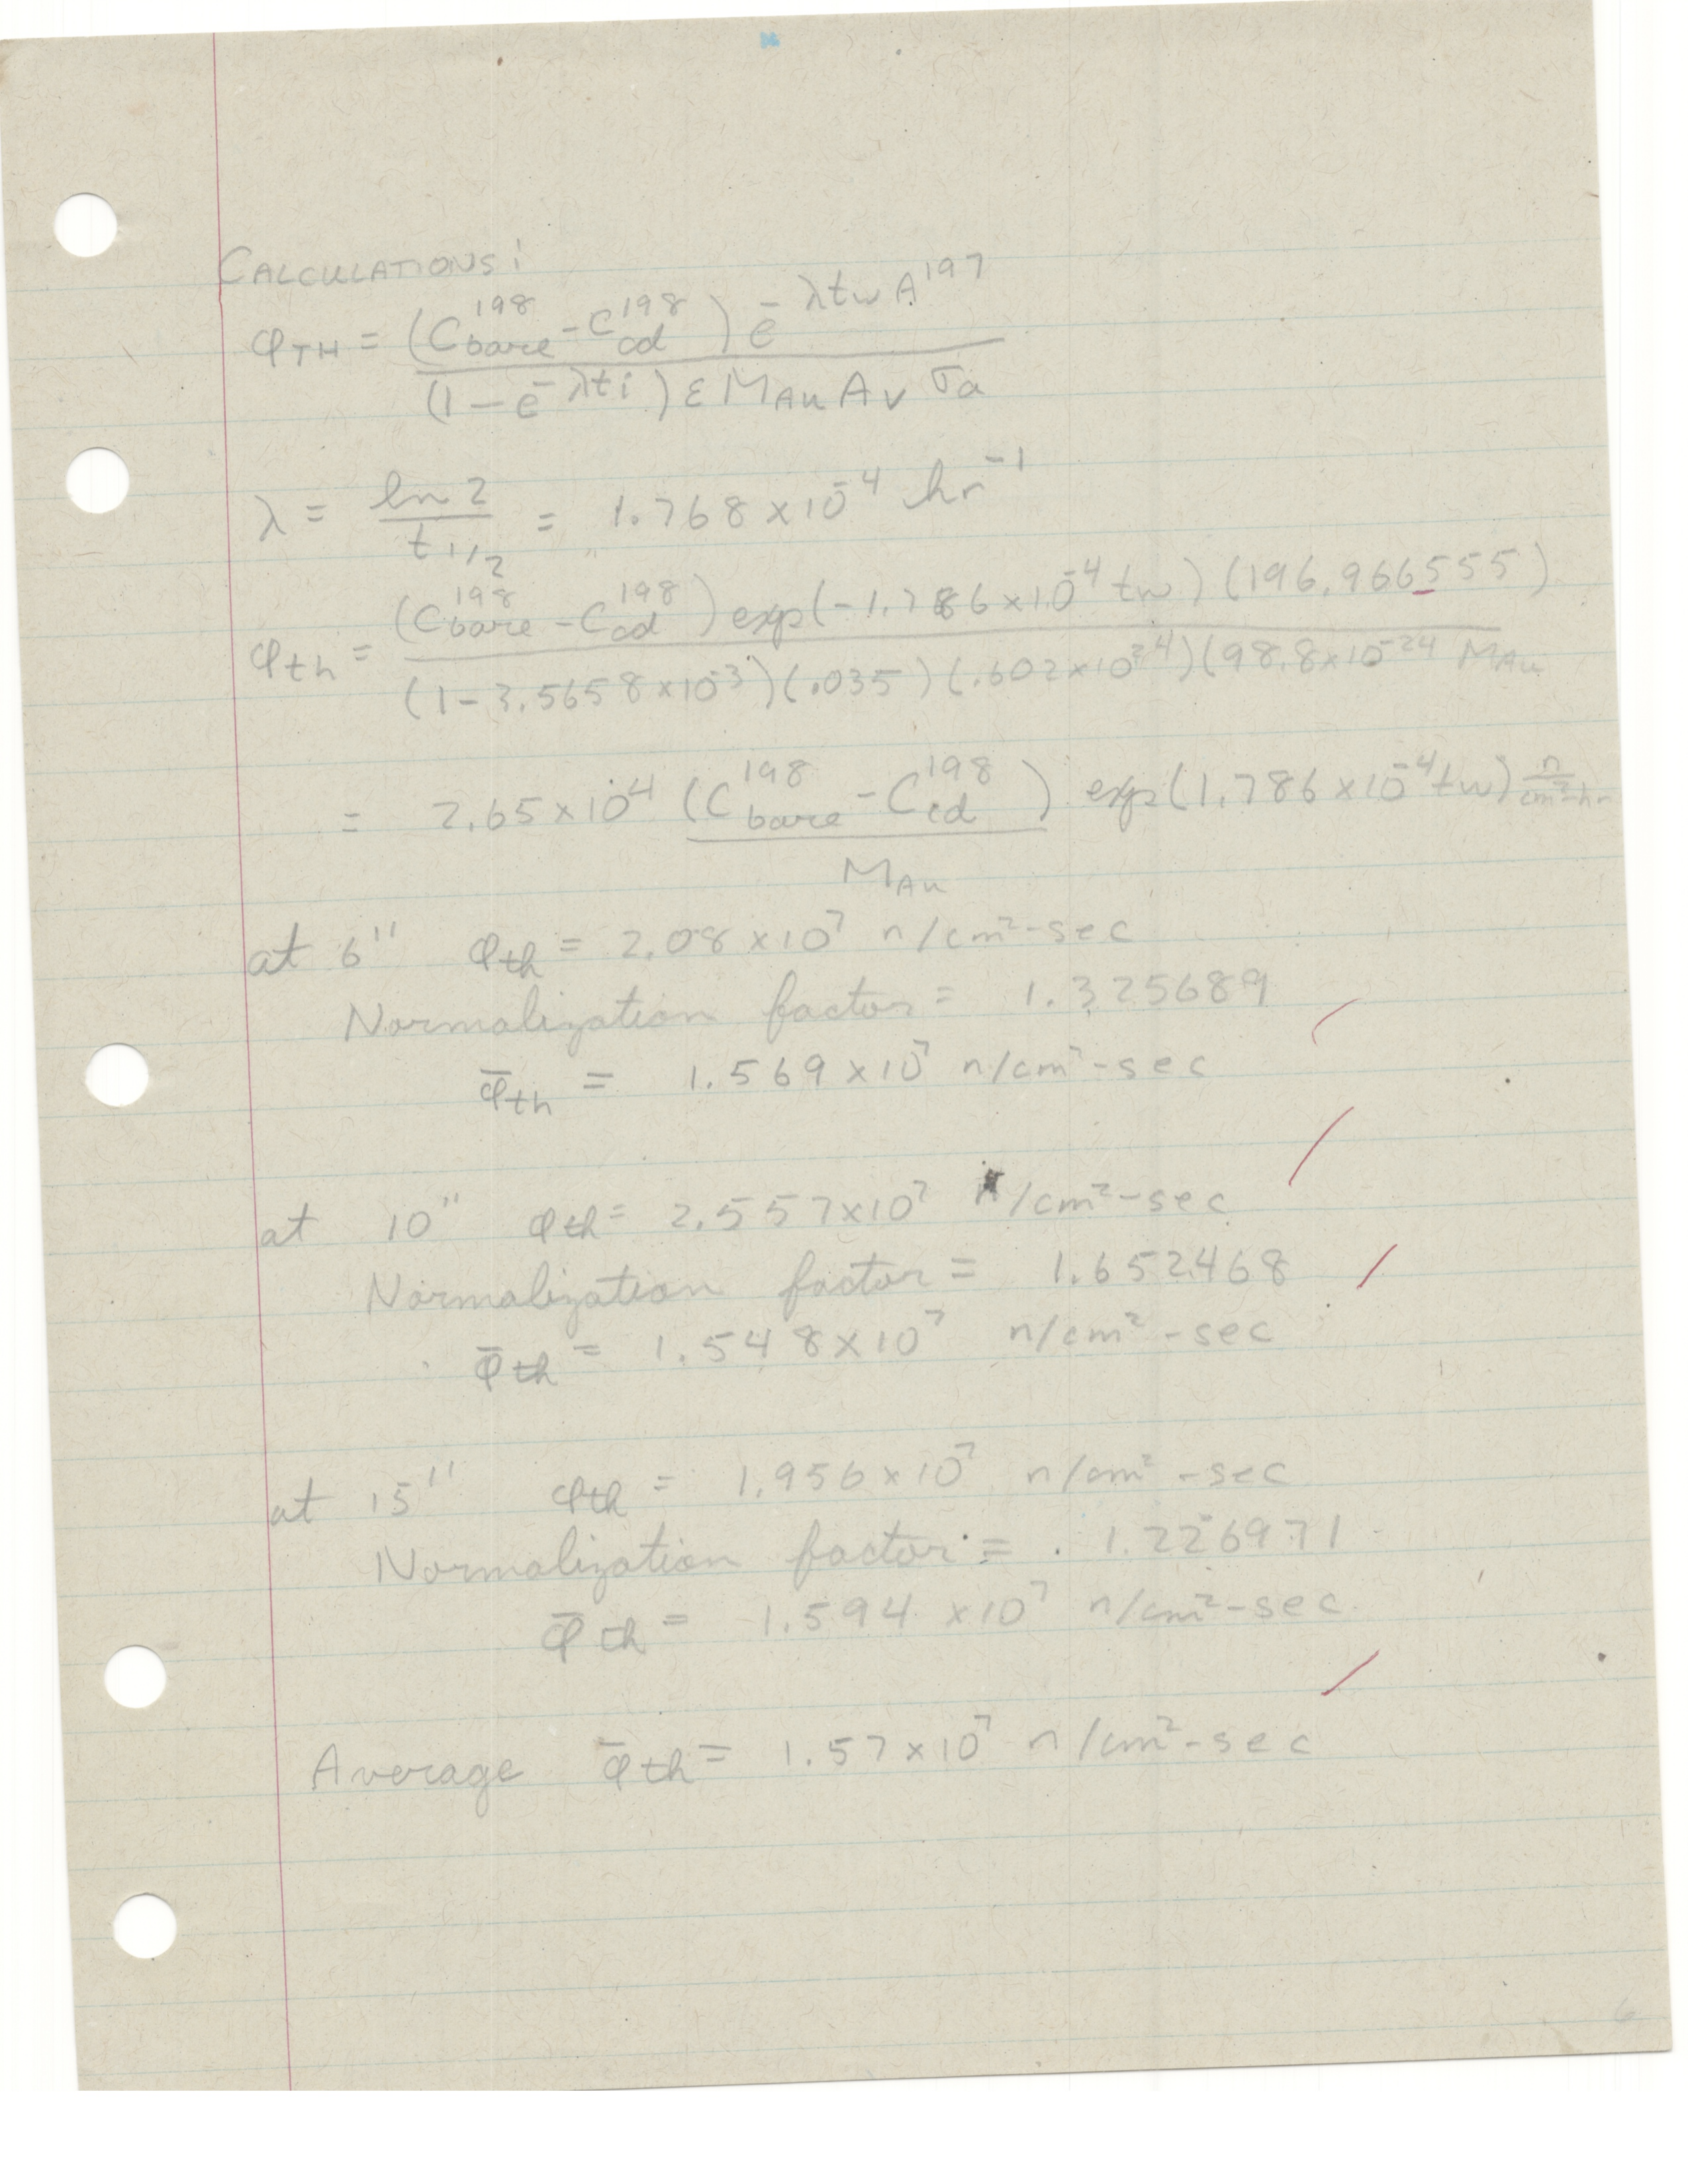 CALCULATIONS:
φTH = (C198bare - C198cd) e-λtw A197
(1 - e-λti) ε MAu Av σa
λ = ln 2 / t1/2 = 1.768 x 10-4 hr-1
φth = (C198bare - C198cd) exp(-1.786 x 10-4 tw) (196.966555)
(1 - 3.5658 x 10-3)(.035)(.602 x 1024)(98.8 x 10-24 MAu
= 2.65 x 104 (C198bare - C198cd) exp(1.786 x 10-4 tw) n/cm2-hr
MAu
at 6" φth = 2.08 x 107 n/cm2-sec
Normalization factor = 1.325689
φ̄th = 1.569 x 107 n/cm2-sec
at 10" φth = 2.557 x 107 n/cm2-sec
Normalization factor = 1.652468
φ̄th = 1.548 x 107 n/cm2-sec
at 15" φth = 1.956 x 107 n/cm2-sec
Normalization factor = 1.226971
φ̄th = 1.594 x 107 n/cm2-sec
Average φ̄th = 1.57 x 107 n/cm2-sec
6